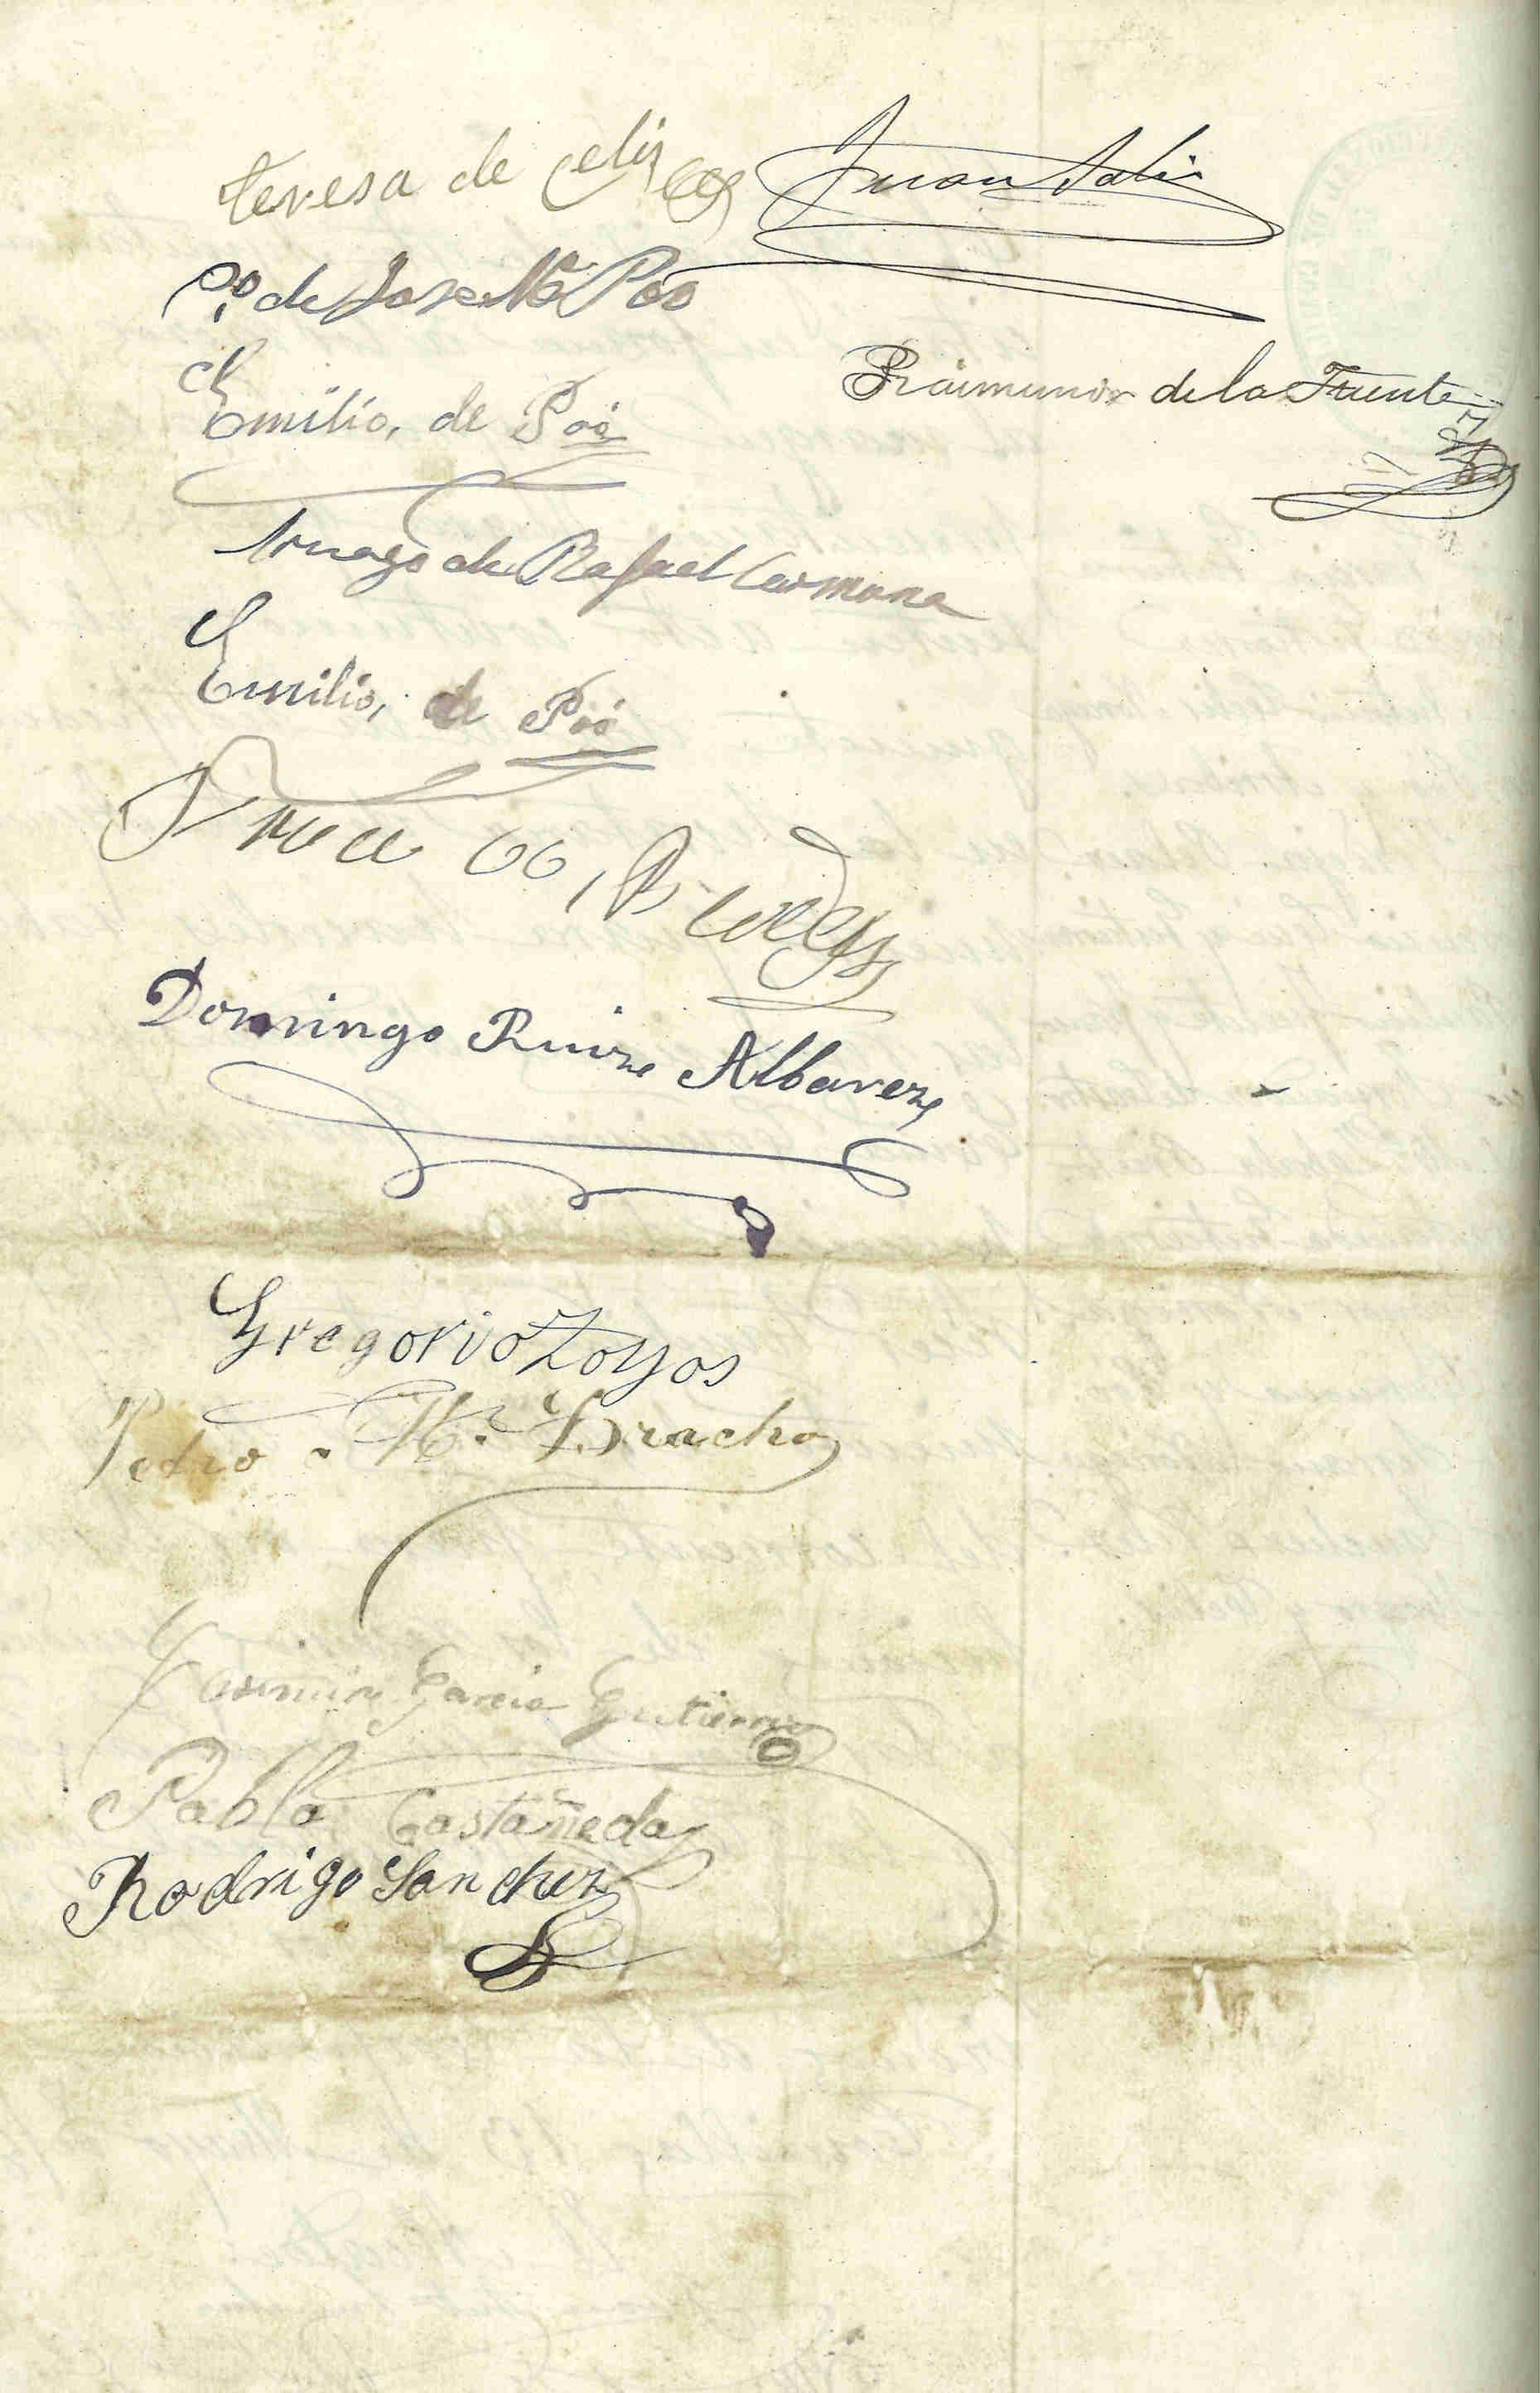 Teresa de Celis
Juan
P.o de Jose Mª Poo
Raimundo de la Fuente
Emilio, de Poó
Arruego de Rafael Carmona
Emilio, de Poó
Domingo Ruize Albareze
Gregorio Zoyos
Pedro. Mª. Bracho
Casimiro Garcia Gutierrez
Pablo Castañeda
Rodrigo Sanchez